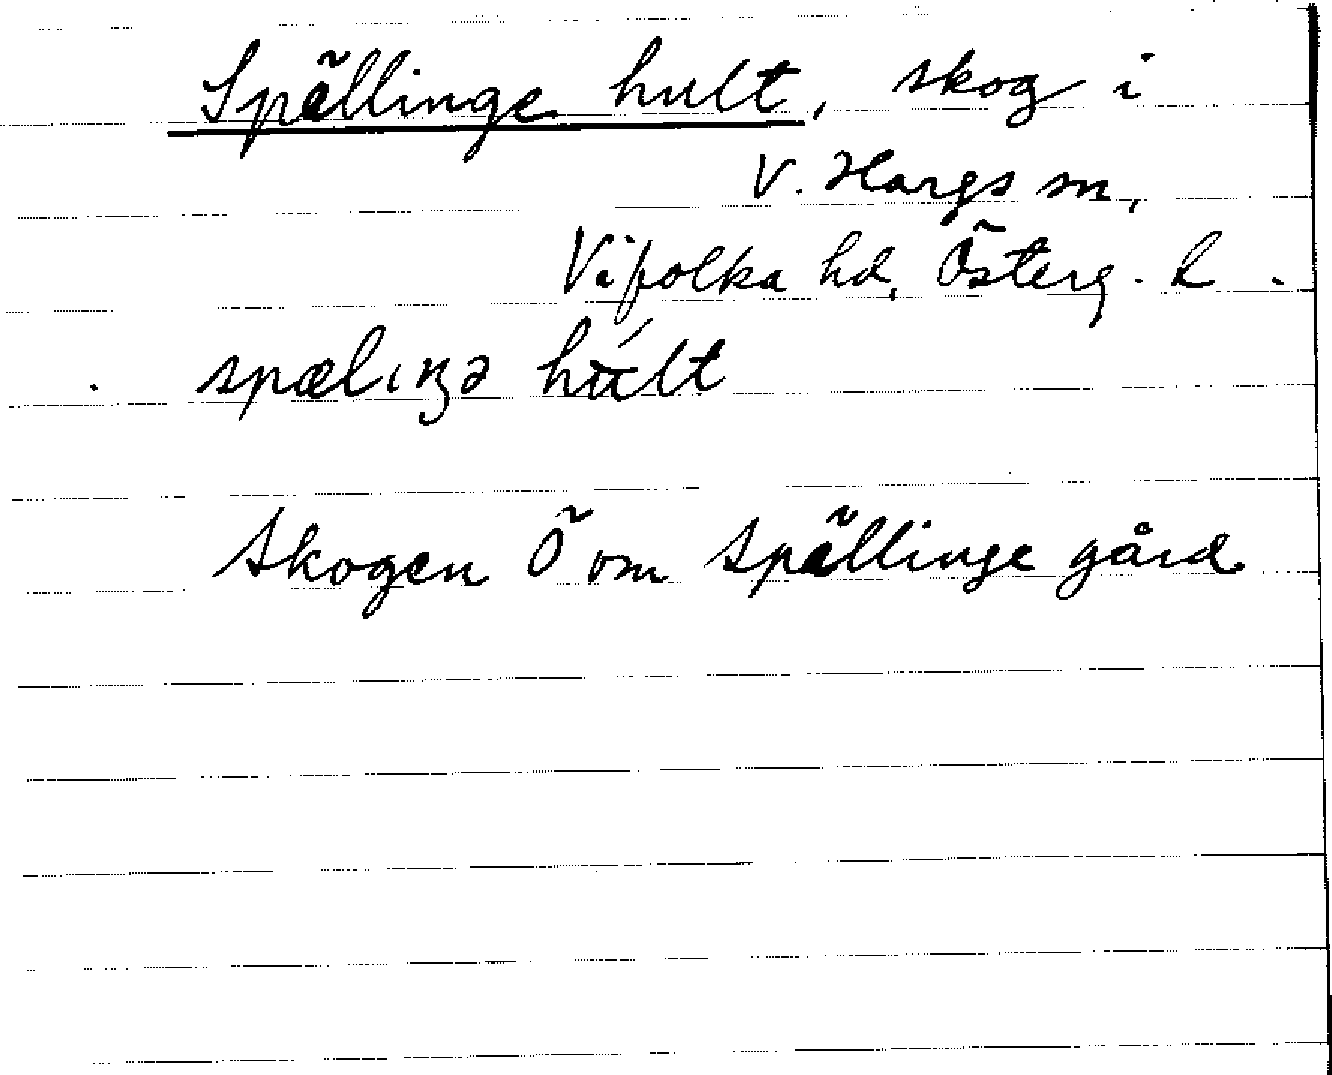 Spällinge hult, skog i
V. Hargs sn,
Vifolka hd, Österg. l.
spælıŋə hult
Skogen Ö om Spällinge gård